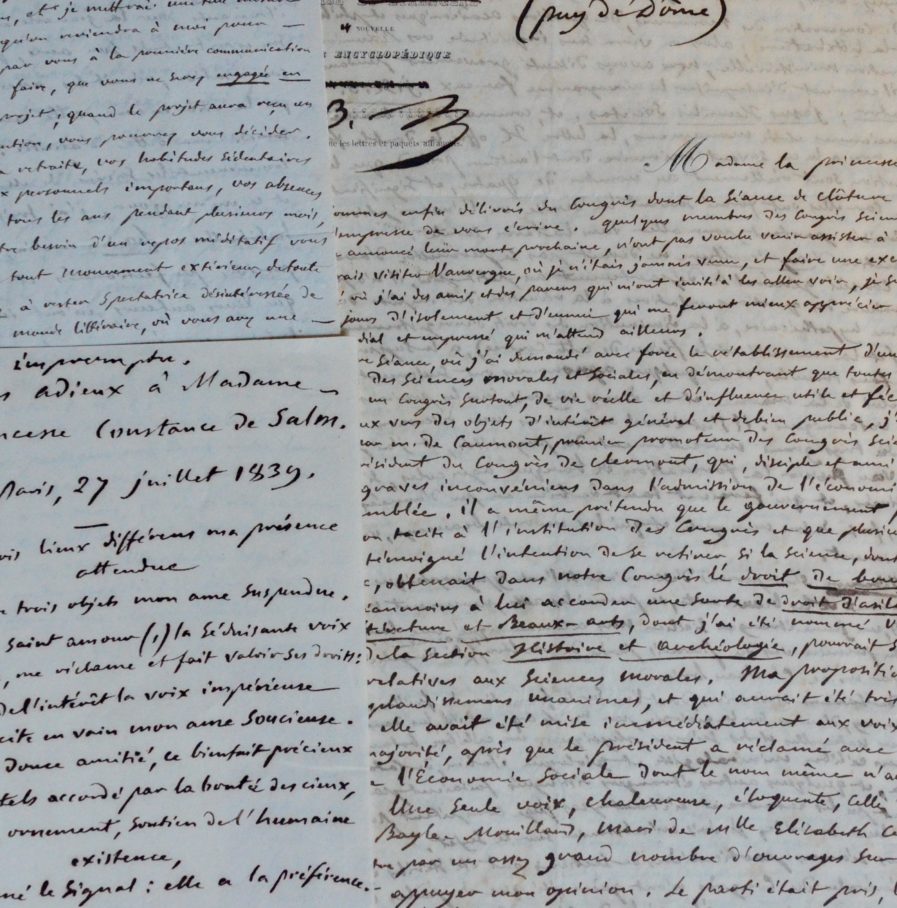 on, et je mettrai
qu'on reviendra à moi pour —
par vous à la première communication
faire, que vous ne serez engagée en
projet; quand le projet aura reçu un
vous pourrez vous décider.
retraite, vos habitudes sédentaires
personnels importans, vos absences
tous les ans pendant plusieurs mois,
besoin d'un repos méditatif vous
tout mouvement extérieur, de toute
à rester spectatrice désintéressée de
monde littéraire, où vous avez une —
impromptu.
adieux à Madame —
Constance de Salm.
Paris, 27 juillet 1839.
lieux différens ma présence
attendue
trois objets mon ame suspendue.
saint amour (1) la séduisante voix
, me réclame et fait valoir ses droits:
de l'intérêt la voix impérieuse
en vain mon ame soucieuse.
douce amitié, ce bienfait précieux
accordé par la bonté des cieux,
ornement, soutien de l'humaine
existence,
le signal: elle a la préférence.
(Puy de Dôme)
NOUVELLE
ENCYCLOPÉDIQUE
les lettres et paquets affranchis.
Madame la princesse
sommes enfin délivrés du Congrès dont la séance de clôture
m'empresse de vous écrire. quelques membres des Congrès
annoncé leur mort prochaine, n'ont pas voulu venir assister à
visiter l'auvergne, où je n'étais jamais venu, et faire une
où j'ai des amis et des parens qui m'ont invité à les aller voir, je
jours d'isolement et d'ennui qui me feront mieux apprécier
et empressé qui m'attend ailleurs.
séance, où j'ai demandé avec force le rétablissement d'un
des sciences morales et sociales, en démontrant que toutes
un Congrès surtout, de vie réelle et d'influence utile et
vers des objets d'intérêt général et de bien public, j'
par m. de Caumont, premier promoteur des Congrès
président du Congrès de Clermont, qui, disciple et ami
graves inconvéniens dans l'admission de l'économi
, il a même prétendu que le gouvernement
tacite à l'institution des Congrès et que
témoigné l'intention de se retirer si la science, dont
, obtenait dans notre Congrès le droit de
néanmoins à lui accorder une sorte de droit d'asile
et Beaux-arts, dont j'ai été nommé
de la section Histoire et archéologie, pouvait
relatives aux sciences morales. Ma proposition
applaudissemens unanimes, et qui aurait été
elle avait été mise immédiatement aux voix
majorité, après que le président a réclamé avec
l'Économie sociale dont le nom même n'a
Une seule voix, chaleureuse, éloquente, celle
Bayle-Mouillard, mari de mlle Elizabeth
par un assez grand nombre d'ouvrages sur
appuyer mon opinion. Le parti était pris,